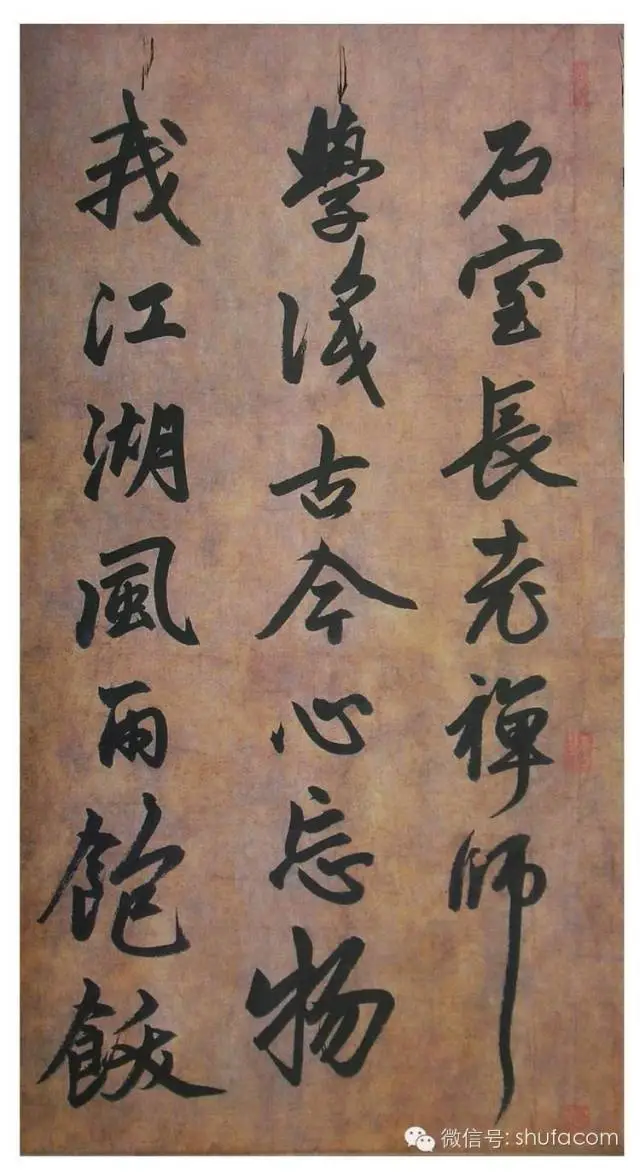 石室長老禪師
學識古今心忘物
我江湖風雨飽飫
微信号: shufacom